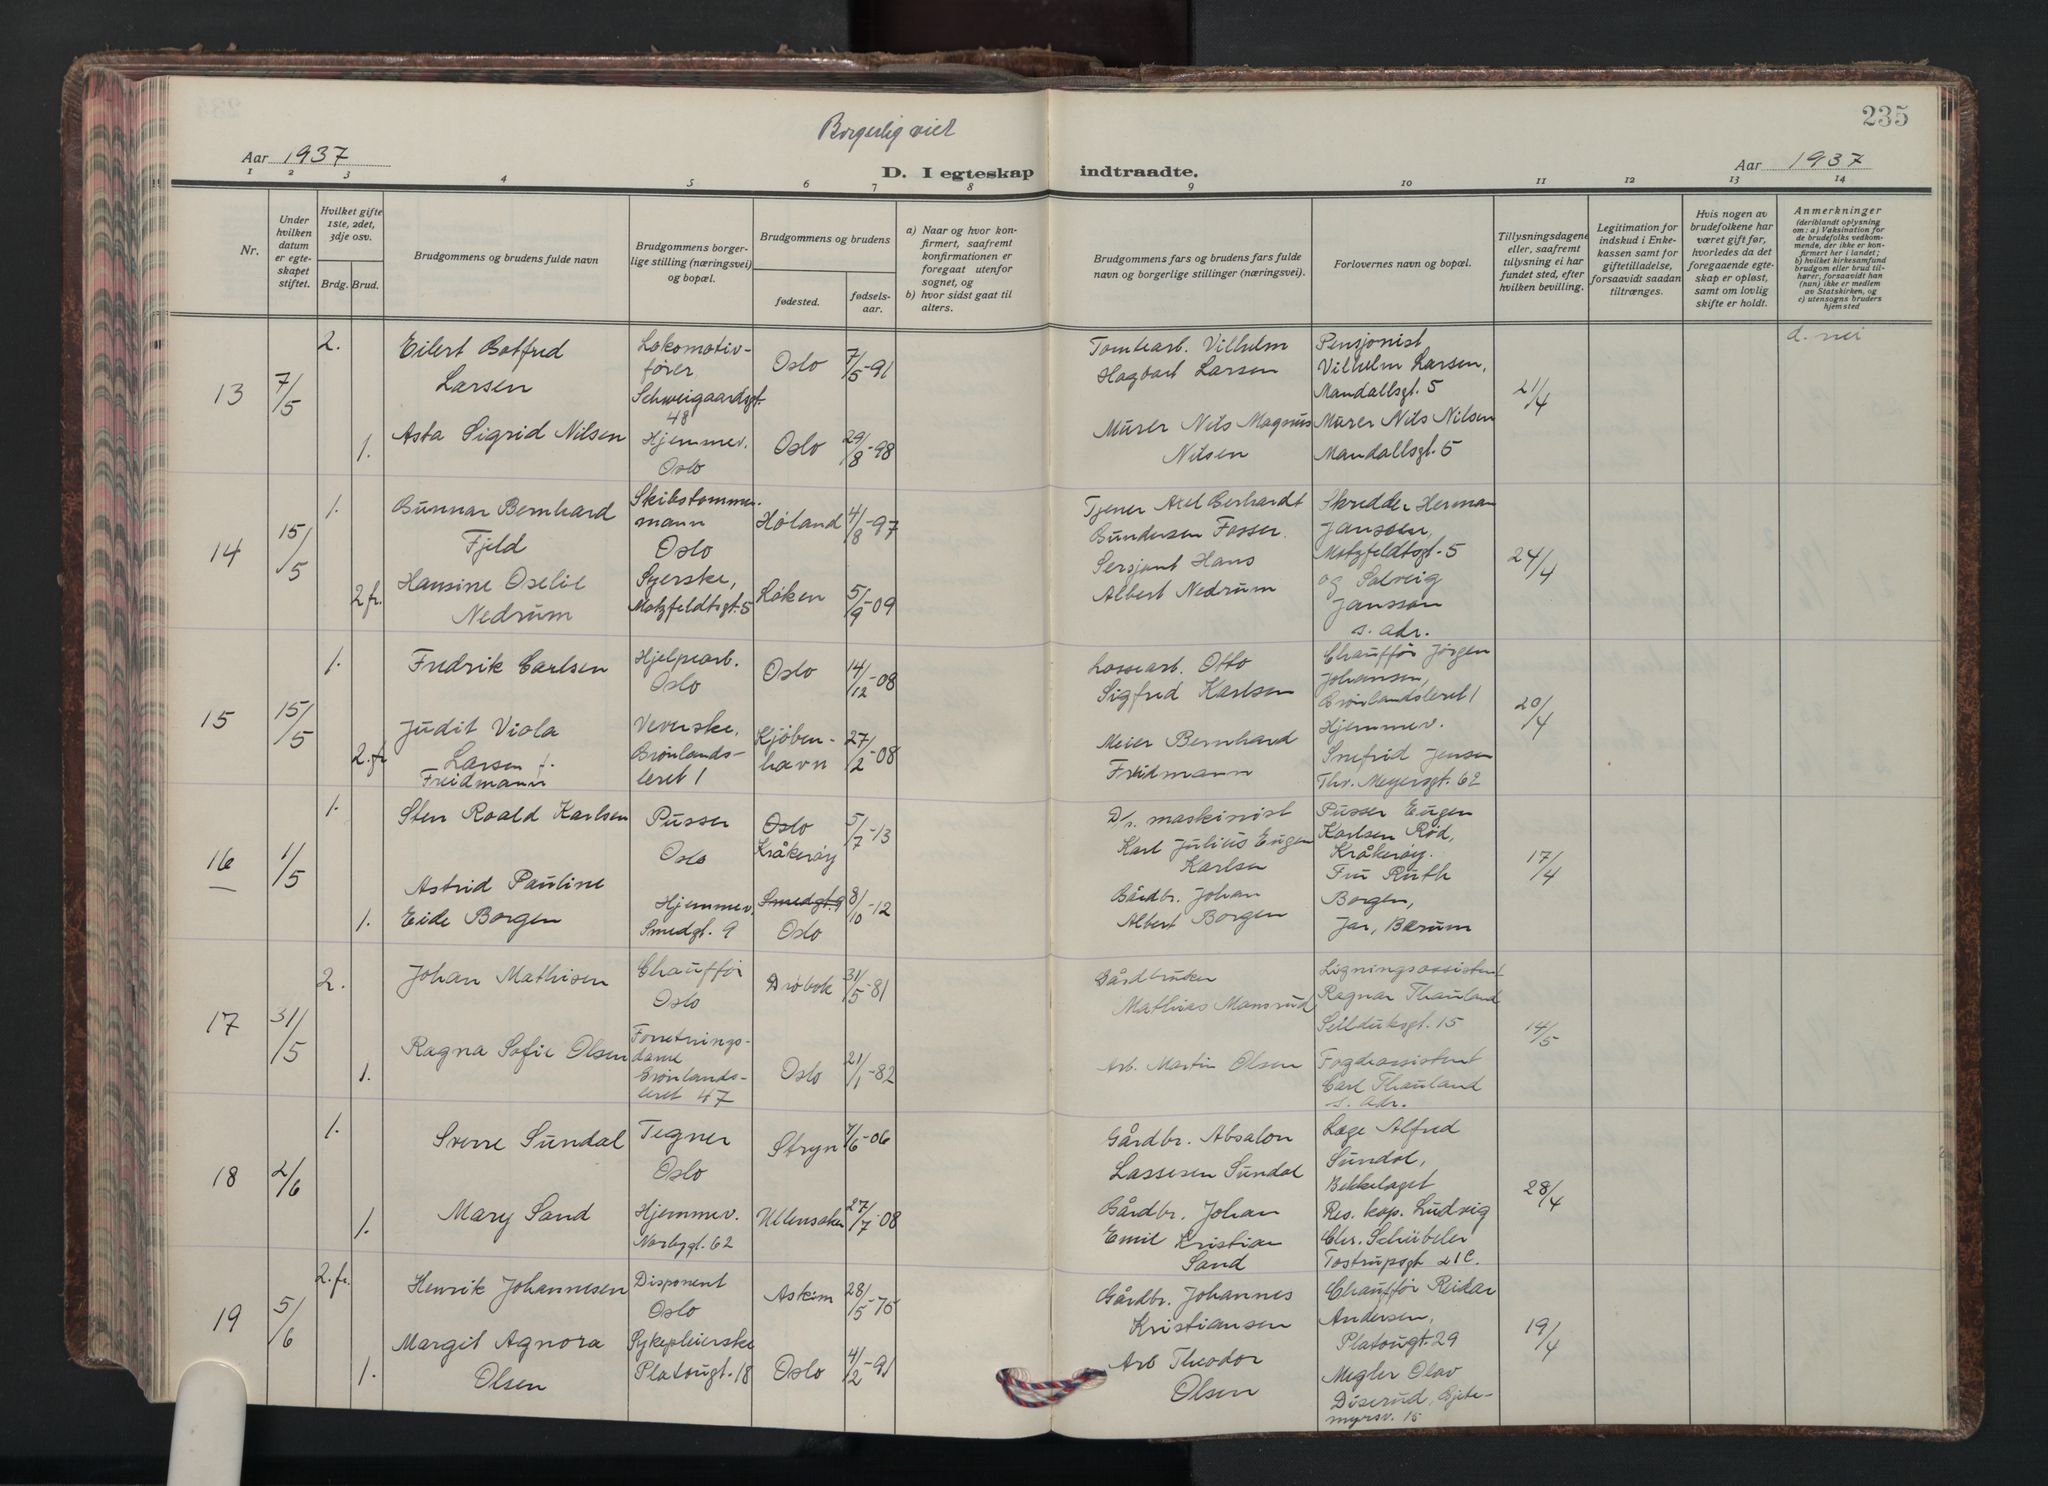 235
Borgerlig viet
Aar 1937
D. I egteskap indtraadte.
Aar 1937
1 2 3 4 5 6 7 8 9 10 11 12 13 14
Nr.
Under hvilken datum er egteskapet stiftet.
Hvilket gifte 1ste, 2det, 3dje osv.
Brdg. Brud.
Brudgommens og brudens fulde navn
Brudgommens borgerlige stilling (næringsvei) og bopæl.
Brudgommens og brudens
fødested. fødselsaar.
a) Naar og hvor konfirmert, saafremt konfirmationen er foregaat utenfor sognet, og
b) hvor sidst gaat til alters.
Brudgommens fars og brudens fars fulde navn og borgerlige stillinger (næringsvei).
Forlovernes navn og bopæl.
Tillysningsdagene eller, saafremt tillysning ei har fundet sted, efter hvilken bevilling.
Legitimation for indskud i Enkekassen samt for giftetilladelse, forsaavidt saadan tiltrænges.
Hvis nogen av brudefolkene har været gift før, hvorledes da det foregaaende egteskap er opløst, samt om lovlig skifte er holdt.
Anmerkninger
(deriblandt oplysning om: a) Vaksination for de brudefolks vedkommende, der ikke er konfirmert her i landet; b) hvilket kirkesamfund brudgom eller brud tilhører, forsaavidt han (hun) ikke er medlem av Statskirken, og c) utensogns bruders hjemsted
13 7/5
2. Eilert Botfred Larsen
Lokomotivfører, Schweigaardsgt. 48
Oslo 7/5-91
Tomtearb. Vilhelm Hagbart Larsen
Pensjonist Vilhelm Larsen, Mandallsgt. 5
21/4
d. nei
1. Asta Sigrid Nilsen
Hjemmev. Oslo
Oslo 29/8-98
Murer Nils Magnus Nilsen
Murer Nils Nilsen Mandallsgt. 5
14 15/5
1. Gunnar Bernhard Fjeld
Skibstømmermann Oslo
Høland 4/8-97
Tjener Axel Gerhardt Gundersen Fosser.
Skredder Herman Janssen, Motzfeldtsgt. 5
24/4
2 fr. Hansine Oselie Nedrum
Syerske, Motzfeldtsgt. 5
Løken 5/9-09
Sersjant Hans Albert Nedrum
og Solveig Jansson s. adr.
15 15/5
1. Fredrik Carlsen
Hjelpearb. Oslo
Oslo 14/12-08
Lossearb. Otto Sigfred Karlsen
Chauffør Jørgen Johansen, Grønlandsleret 1
20/4
2. fr. Judit Viola Larsen f. Freidmann
Veverske, Grønlandsleret 1
Kjøbenhavn 27/2-08
Meier Bernhard Freidmann
Hjemmev. Snefrid Jensen Thv. Meyersgt. 62
16 1/5
1. Sten Roald Karlsen
Pusser Oslo
Oslo Kråkerøy 5/7-13
D/s. maskinist Karl Julius Eugen Karlsen
Pusser Eugen Karlsen Rød, Kråkerøy.
17/4
1. Astrid Pauline Eide Borgen
Hjemmev. Smedgt. 9
Smedgt. 9 Oslo 8/10-12
Gårdbr. Johan Albert Borgen
Fru Ruth Borgen, Jar, Bærum
17 31/5
2. Johan Mathisen
Chauffør Oslo
Drøbak 31/5-81
Gårdbruker Mathias Mansrud
Ligningsassistent Ragnar Thauland Seilduksgt. 15
14/5
1. Ragna Sofie Olsen
Forretningsdame Grønlandsleret 47
Oslo 21/1-82
Arb. Martin Olsen
Fogdeassistent Carl Thauland s. adr.
18 2/6
1. Sverre Sundal
Tegner Oslo
Stryn 7/6-06
Gårdbr. Absalon Lassesen Sundal
Læge Alfred Sundal, Bekkelaget
28/4
1. Mary Sand
Hjemmev. Norbygt. 62
Ullensaker 27/7-08
Gårdbr. Johan Emil Kristian Sand
Res. kap. Ludvig Chr. Schübeler Tostrupsgt 21 C.
19 5/6
2. fr. Henrik Johannesen
Disponent Oslo
Askim 28/5-75
Gårdbr. Johannes Kristiansen
Chauffør Reidar Andersen, Platougt. 29
19/4
1. Margit Agnora Olsen
Sykepleierske Platougt. 18
Oslo 4/2-91
Arb Theodor Olsen
Megler Olav Diserud, Gjetemyrsv. 15